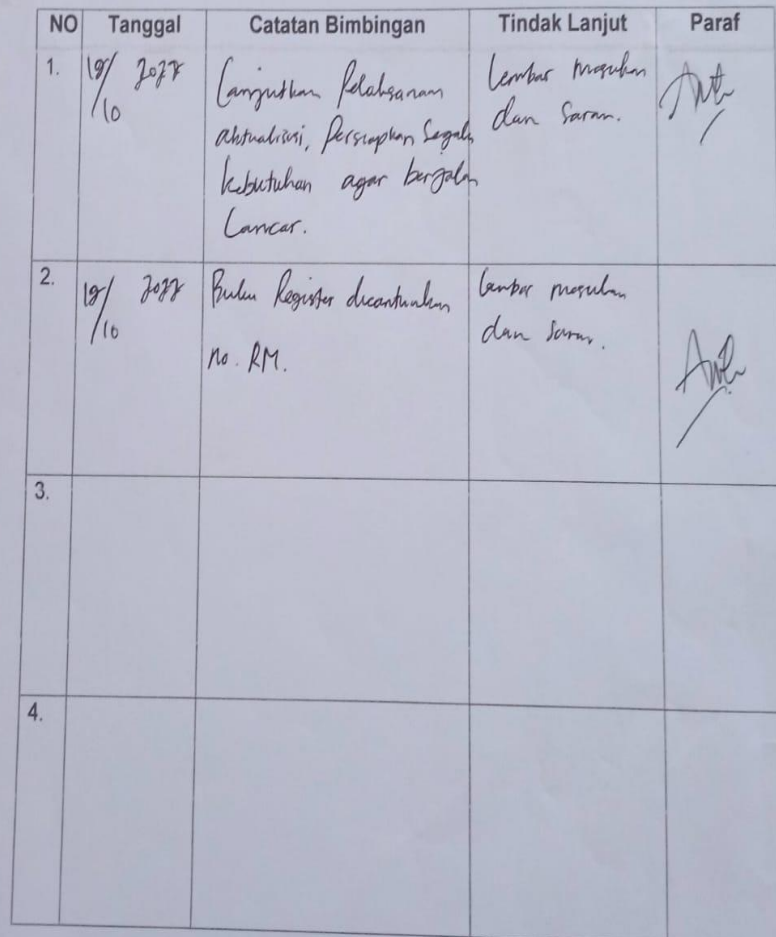 NO Tanggal Catatan Bimbingan Tindak Lanjut Paraf
1. 19/10 2022 Lanjutkan Pelaksanaan
aktualisasi, Persiapkan Segala
kebutuhan agar berjalan
Lancar.
Lembar masukan
dan Saran.
2. 19/10 2022 Buku Register dicantumkan
no. RM.
Lembar masukan
dan Saran.
3.
4.